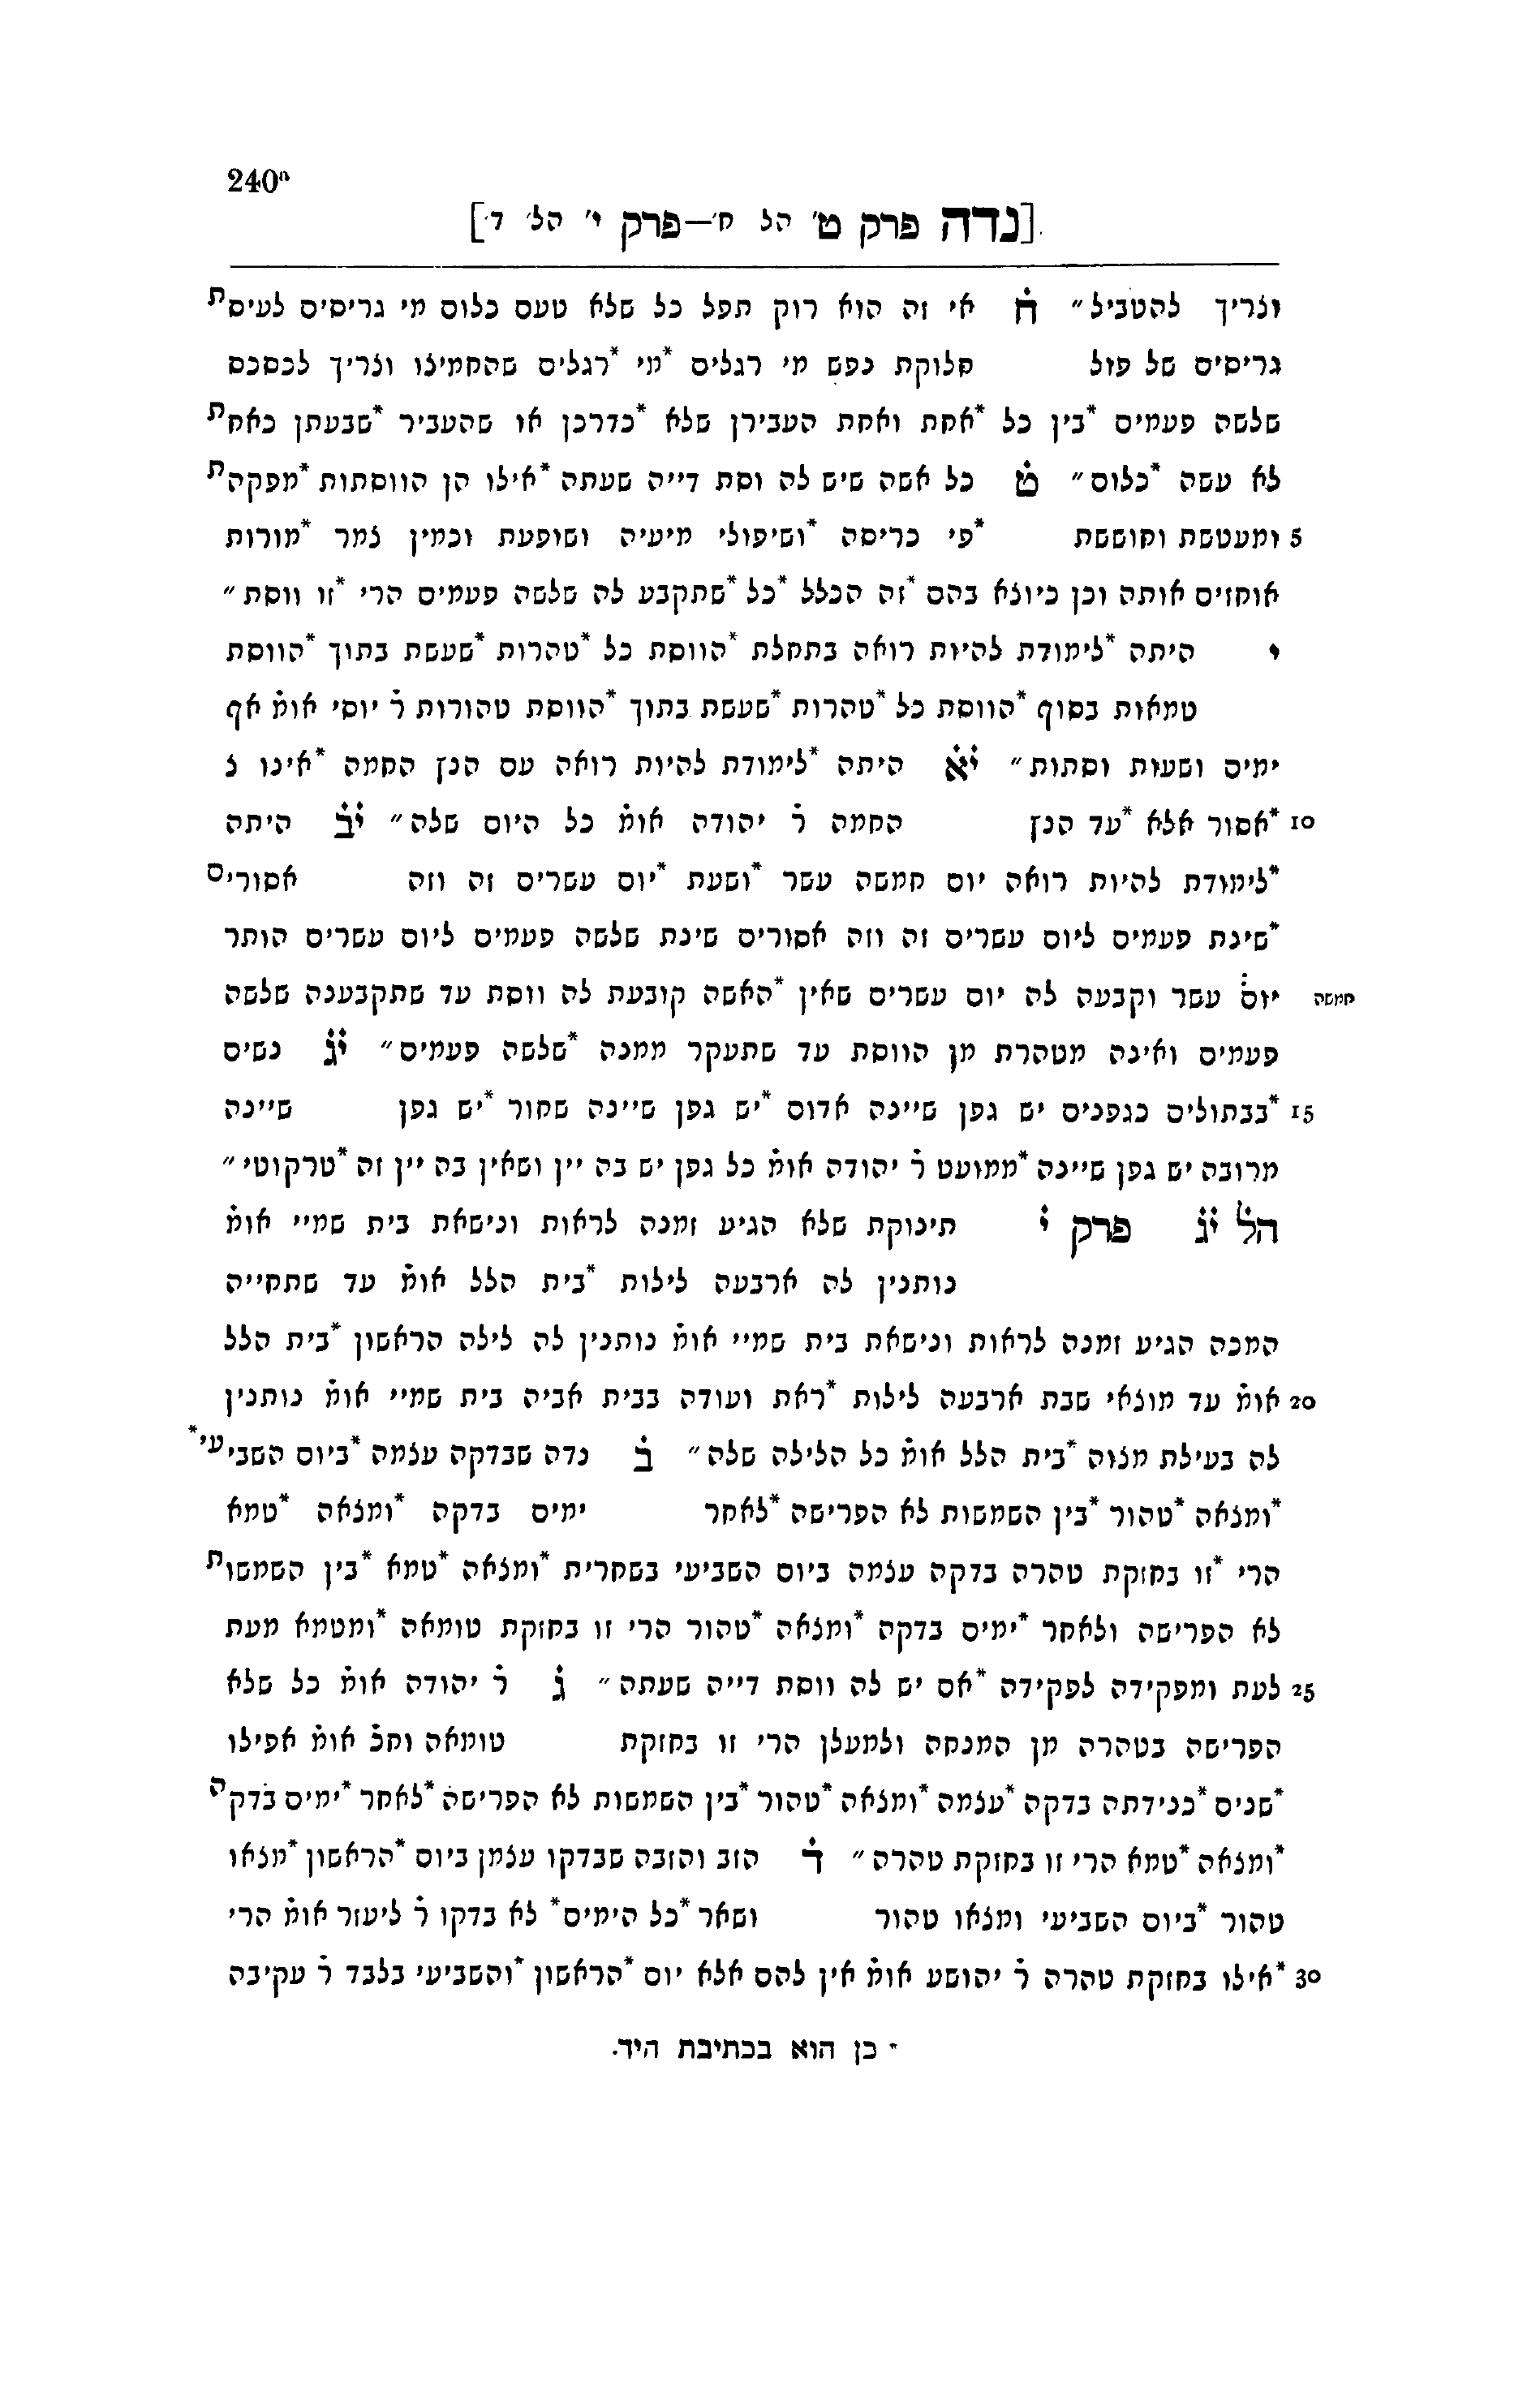 240ª
[נדה פרק ט' הל ח'—פרק י' הל' ד']
וצריך להטביל״ ח֗ אי זה הוא רוק תפל כל שלא טעם כלום מי גריסים לעיסת
גריסים של פול חלוקת נפש מי רגלים *מי *רגלים שהחמיצו וצריך לכסכס
שלשה פעמים *בין כל *אחת ואחת העבירן שלא *כדרכן או שהעביר *שבעתן כאחת
לא עשה *כלום״ ט֗ כל אשה שיש לה וסת דייה שעתה *אילו הן הווסתות *מפקהת
5 ומעטשת וחוששת *פי כריסה *ושיפולי מיעיה ושופעת וכמין צמר *מורות
אוחזים אותה וכן כיוצא בהם *זה הכלל *כל *שתקבע לה שלשה פעמים הרי *זו ווסת״
י היתה *לימודת להיות רואה בתחלת *הווסת כל *טהרות *שעשת בתוך *הווסת
טמאות בסוף *הווסת כל *טהרות *שעשת בתוך *הווסת טהורות ר֗ יוסי אומ֗ אף
ימים ושעות וסתות״ י֗א֗ היתה *לימודת להיות רואה עם הנץ החמה *אינו צ
10 *אסור אלא *עד הנץ החמה ר֗ יהודה אומ֗ כל היום שלה״ י֗ב֗ היתה
*לימודת להיות רואה יום חמשה עשר *ושעת *יום עשרים זה וזה אסורים
*שינת פעמים ליום עשרים זה וזה אסורים שינת שלשה פעמים ליום עשרים הותר
חמשה יום֗ עשר וקבעה לה יום עשרים שאין *האשה קובעת לה ווסת עד שתקבענה שלשה
פעמים ואינה מטהרת מן הווסת עד שתעקר ממנה *שלשה פעמים״ י֗ג֗ נשים
15 *בבתולים כגפנים יש גפן שיינה אדום *יש גפן שיינה שחור *יש גפן שיינה
מרובה יש גפן שיינה *ממועט ר֗ יהודה אומ֗ כל גפן יש בה יין ושאין בה יין זה *טרקוטי״
הל֗ י֗ג֗ פרק י֗ תינוקת שלא הגיע זמנה לראות ונישאת בית שמיי אומ֗
נותנין לה ארבעה לילות *בית הלל אומ֗ עד שתחייה
המכה הגיע זמנה לראות ונישאת בית שמיי אומ֗ נותנין לה לילה הראשון *בית הלל
20 אומ֗ עד מוצאי שבת ארבעה לילות *ראת ועודה בבית אביה בית שמיי אומ֗ נותנין
לה בעילת מצוה *בית הלל אומ֗ כל הלילה שלה״ ב֗ נדה שבדקה עצמה *ביום השביעי*
*ומצאה *טהור *בין השמשות לא הפרישה *לאחר ימים בדקה *ומצאה *טמא
הרי *זו בחזקת טהרה בדקה עצמה ביום השביעי בשחרית *ומצאה *טמא *בין השמשות
לא הפרישה ולאחר *ימים בדקה *ומצאה *טהור הרי זו בחזקת טומאה *ומטמא מעת
25 לעת ומפקידה לפקידה *אם יש לה ווסת דייה שעתה״ ג֗ ר֗ יהודה אומ֗ כל שלא
הפרישה בטהרה מן המנחה ולמעלן הרי זו בחזקת טומאה וחכ֗ אומ֗ אפילו
*שנים *בנידתה בדקה *עצמה *ומצאה *טהור *בין השמשות לא הפרישה *לאחר *ימים בדקה
*ומצאה *טמא הרי זו בחזקת טהרה״ ד֗ הזב והזבה שבדקו עצמן ביום *הראשון *מצאו
טהור *ביום השביעי ומצאו טהור ושאר *כל הימים* לא בדקו ר֗ ליעזר אומ֗ הרי
30 *אילו בחזקת טהרה ר֗ יהושע אומ֗ אין להם אלא יום *הראשון *והשביעי בלבד ר֗ עקיבה
* כן הוא בכתיבת היד.